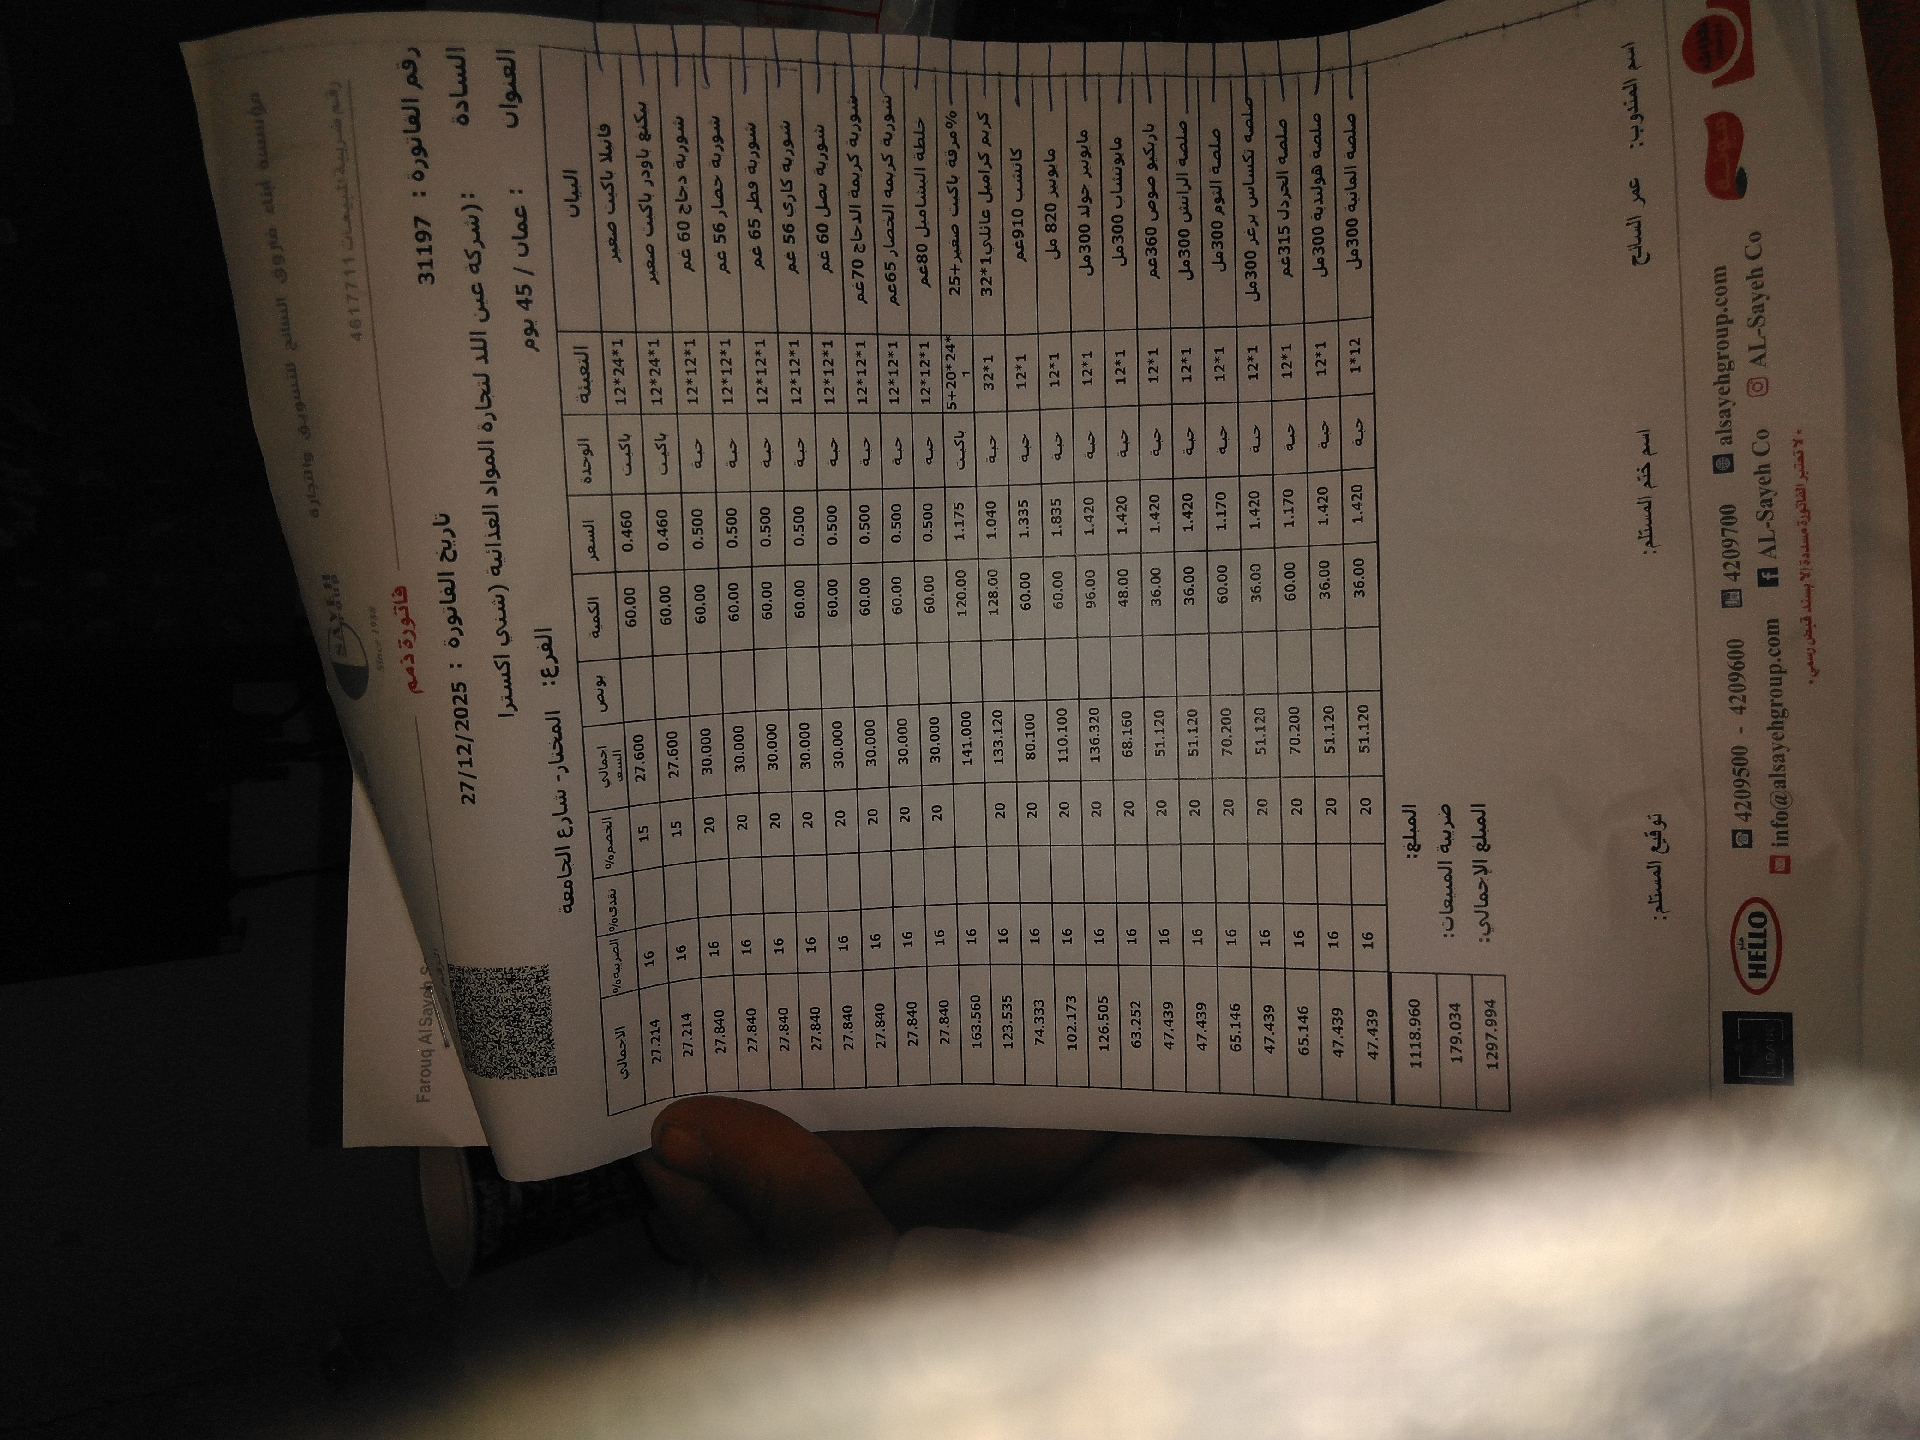 مؤسسة ابناء فاروق السايح للتسويق والتجارة
رقم ضريبة المبيعات 4617711
Since 1940
فاتورة ذمم
رقم الفاتورة : 31197 تاريخ الفاتورة : 27/12/2025
السادة : (شركة عين اللد لتجارة المواد الغذائية (شني اكسترا
العنوان : عمان / 45 يوم الفرع: المختار- شارع الجامعة
البيان التعبئة الوحدة السعر الكمية بونص اجمالي السعر الخصم% نقدي% الضريبة% الاجمالي
فانيلا باكيت صغير 12*24*1 باكيت 0.460 60.00 27.600 15 16 27.214
بيكنغ باودر باكيت صغير 12*24*1 باكيت 0.460 60.00 27.600 15 16 27.214
شوربة دجاج 60 غم 12*12*1 حبة 0.500 60.00 30.000 20 16 27.840
شوربة خضار 56 غم 12*12*1 حبة 0.500 60.00 30.000 20 16 27.840
شوربة فطر 65 غم 12*12*1 حبة 0.500 60.00 30.000 20 16 27.840
شوربة كاري 56 غم 12*12*1 حبة 0.500 60.00 30.000 20 16 27.840
شوربة بصل 60 غم 12*12*1 حبة 0.500 60.00 30.000 20 16 27.840
شوربة كريمة الدجاج 70غم 12*12*1 حبة 0.500 60.00 30.000 20 16 27.840
شوربة كريمة الخضار 65غم 12*12*1 حبة 0.500 60.00 30.000 20 16 27.840
خلطة البشاميل 80غم 12*12*1 حبة 0.500 60.00 30.000 20 16 27.840
%مرقة باكيت صغير+25 5+20*24*1 باكيت 1.175 120.00 141.000 16 163.560
كريم كراميل عائلي1*32 32*1 حبة 1.040 128.00 133.120 20 16 123.535
كاتشب 910غم 12*1 حبة 1.335 60.00 80.100 20 16 74.333
مايونيز 820 مل 12*1 حبة 1.835 60.00 110.100 20 16 102.173
مايونيز جولد 300مل 12*1 حبة 1.420 96.00 136.320 20 16 126.505
مايوتشاب 300مل 12*1 حبة 1.420 48.00 68.160 20 16 63.252
باربكيو صوص 360غم 12*1 حبة 1.420 36.00 51.120 20 16 47.439
صلصة الرانش 300مل 12*1 حبة 1.420 36.00 51.120 20 16 47.439
صلصة الثوم 300مل 12*1 حبة 1.170 60.00 70.200 20 16 65.146
صلصة تكساس برغر 300مل 12*1 حبة 1.420 36.00 51.120 20 16 47.439
صلصة الخردل 315غم 12*1 حبة 1.170 60.00 70.200 20 16 65.146
صلصة هولندية 300مل 12*1 حبة 1.420 36.00 51.120 20 16 47.439
صلصة المانية 300مل 1*12 حبة 1.420 36.00 51.120 20 16 47.439
المبلغ: 1118.960
ضريبة المبيعات: 179.034
المبلغ الإجمالي: 1297.994
اسم المندوب: عمر السايح اسم ختم المستلم: توقيع المستلم:
4209500 - 4209600 4209700 alsayehgroup.com
info@alsayehgroup.com AL-Sayeh Co AL-Sayeh Co
HELLO
Farouq Al Sayeh S